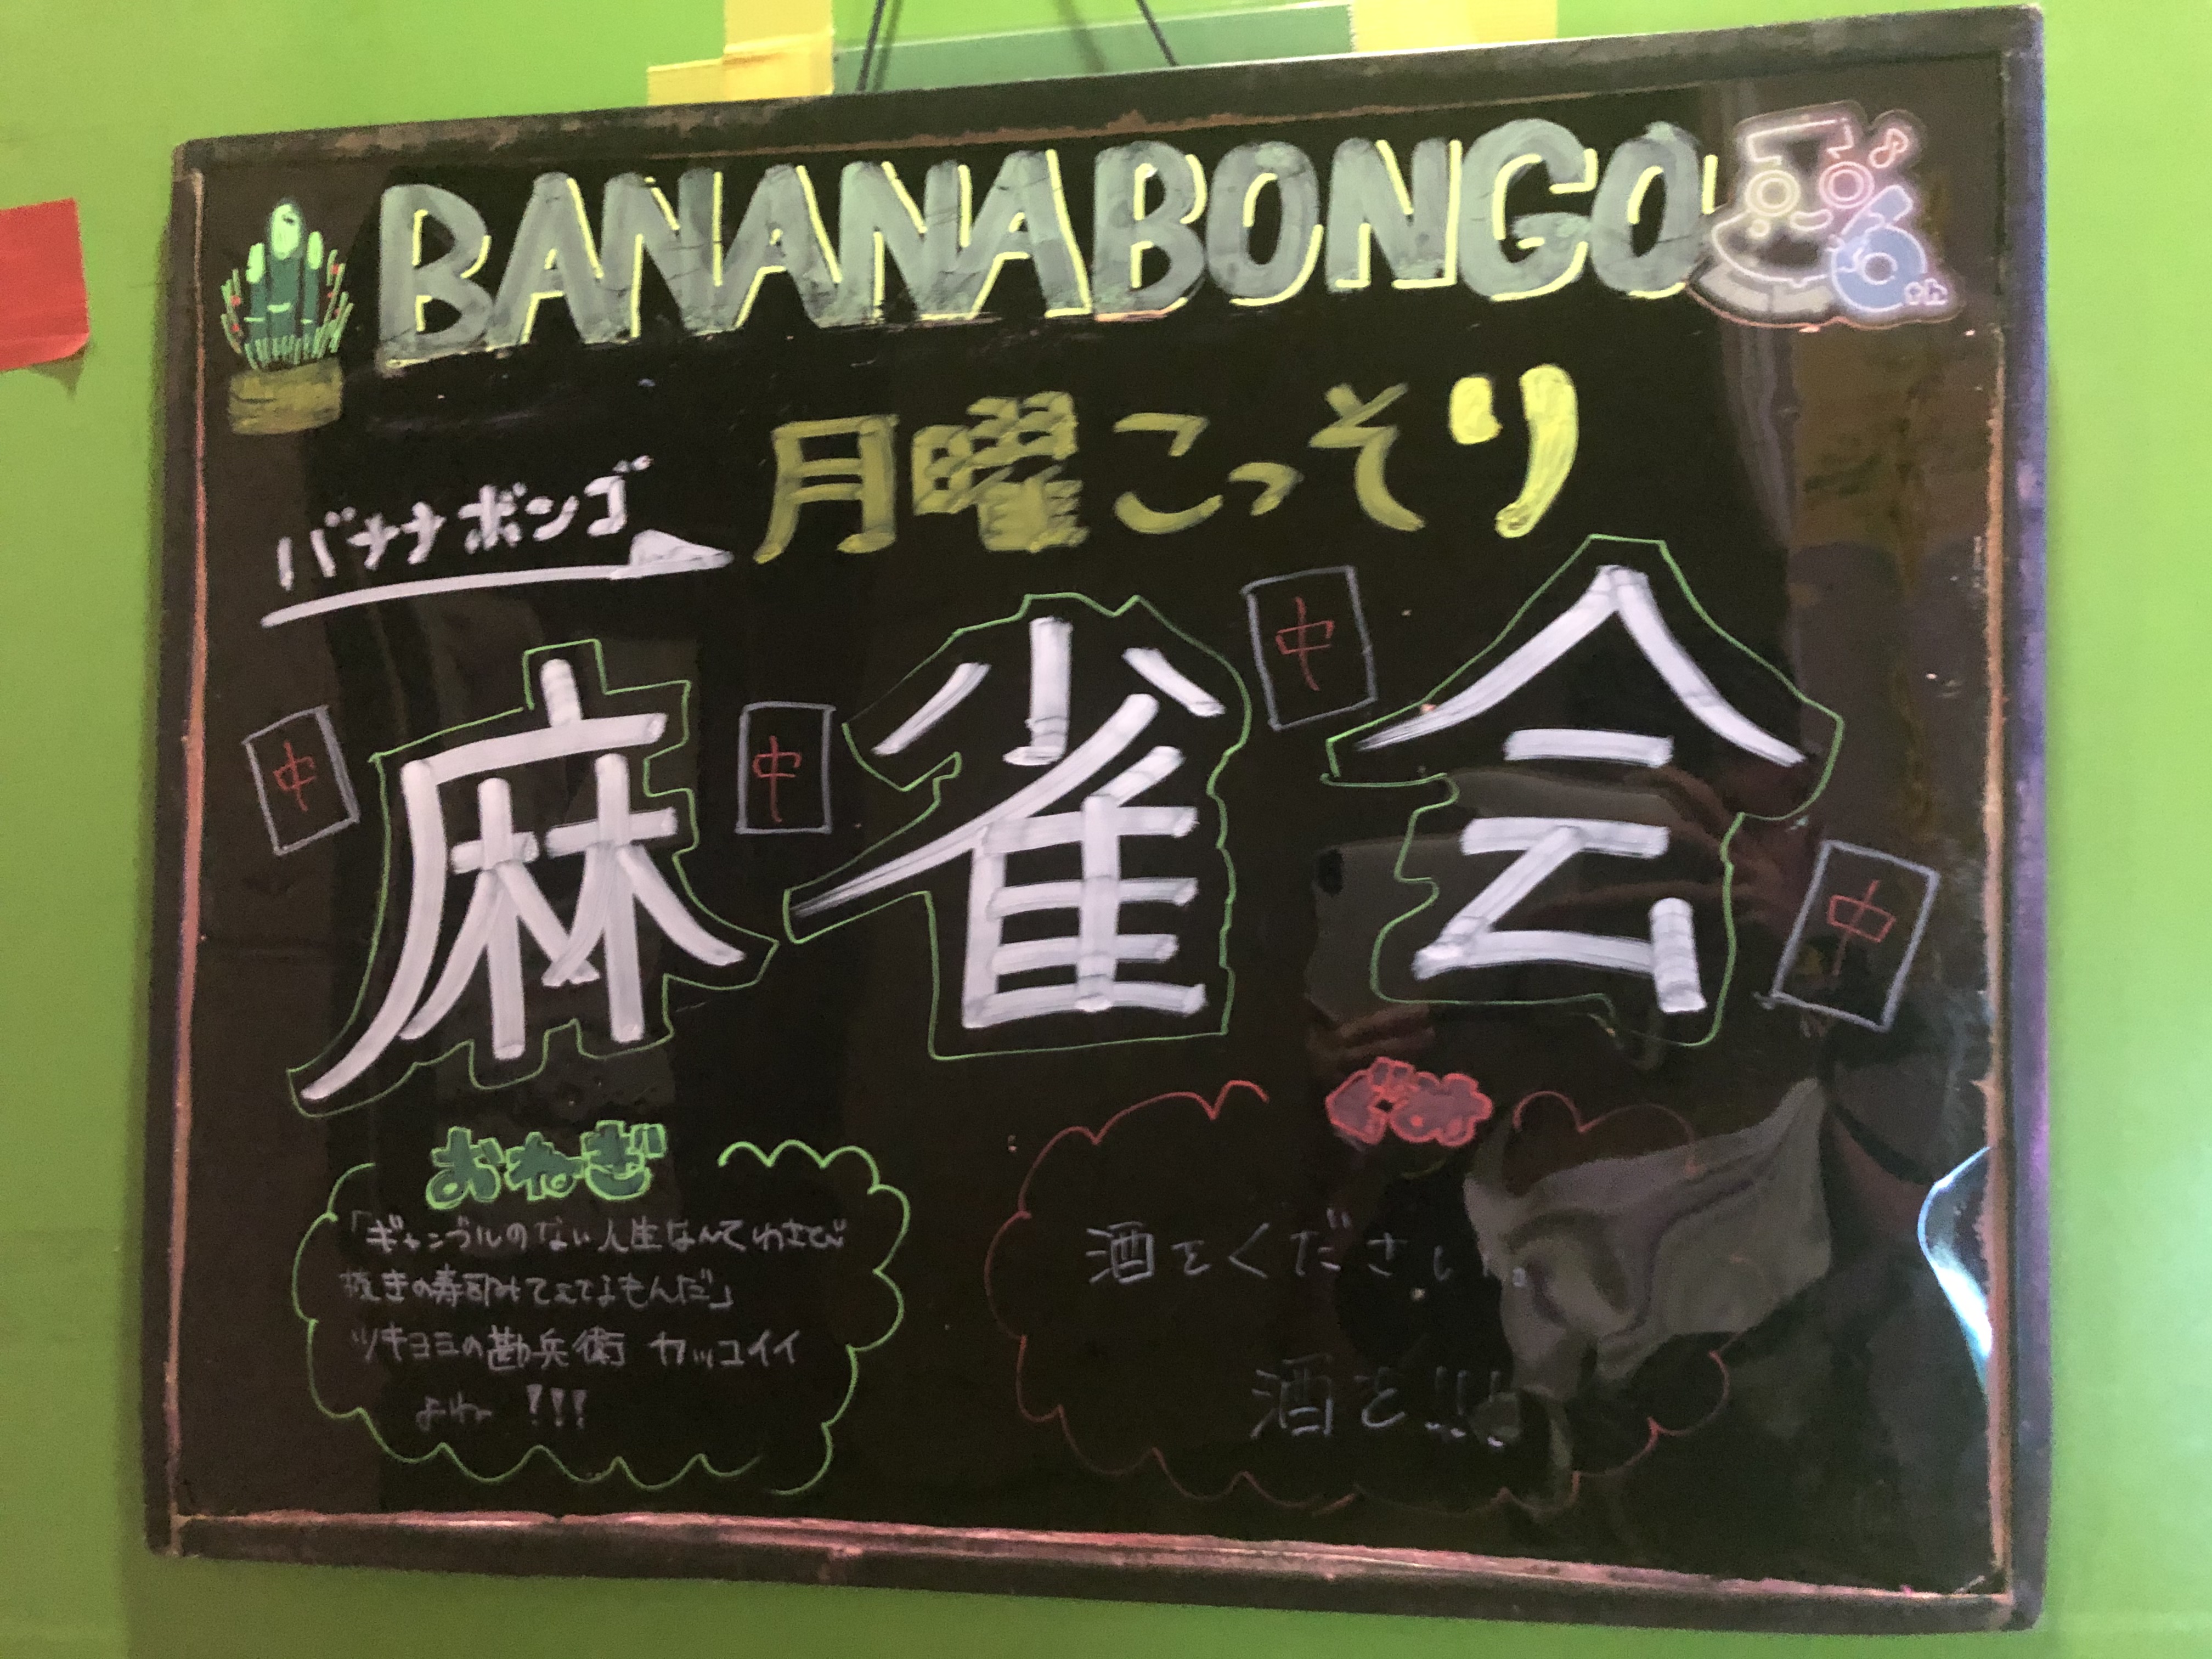 BANANABONGO
6th
月曜こっそり
バナナボンゴ
麻雀会
中
中
中
中
おねぎ
「ギャンブルのない人生なんてわさび
抜きの寿司みてェてなもんだ」
ツキヨミの勘兵衛 カッコイイ
よね !!!
酒をください。
酒を!!!